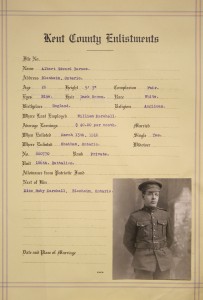 Kent County Enlistments
File No.
Name Albert Harold
Address Blenheim, Ontario.
Age Height 5' 5" Complexion Fair.
Eyes Blue. Hair Dark Brown. Race White.
Birthplace England. Religion Anglican.
Where Last Employed William Marshall.
Average Earnings $ per month. Married
When Enlisted March 1916 Single Yes.
Where Enlisted Chatham, Ontario. Widower
No. Rank Private.
Unit 186th. Battalion.
Allowance from Patriotic Fund
Next of Kin
Miss Ruby Marshall, Blenheim, Ontario.
Date and Place of Marriage